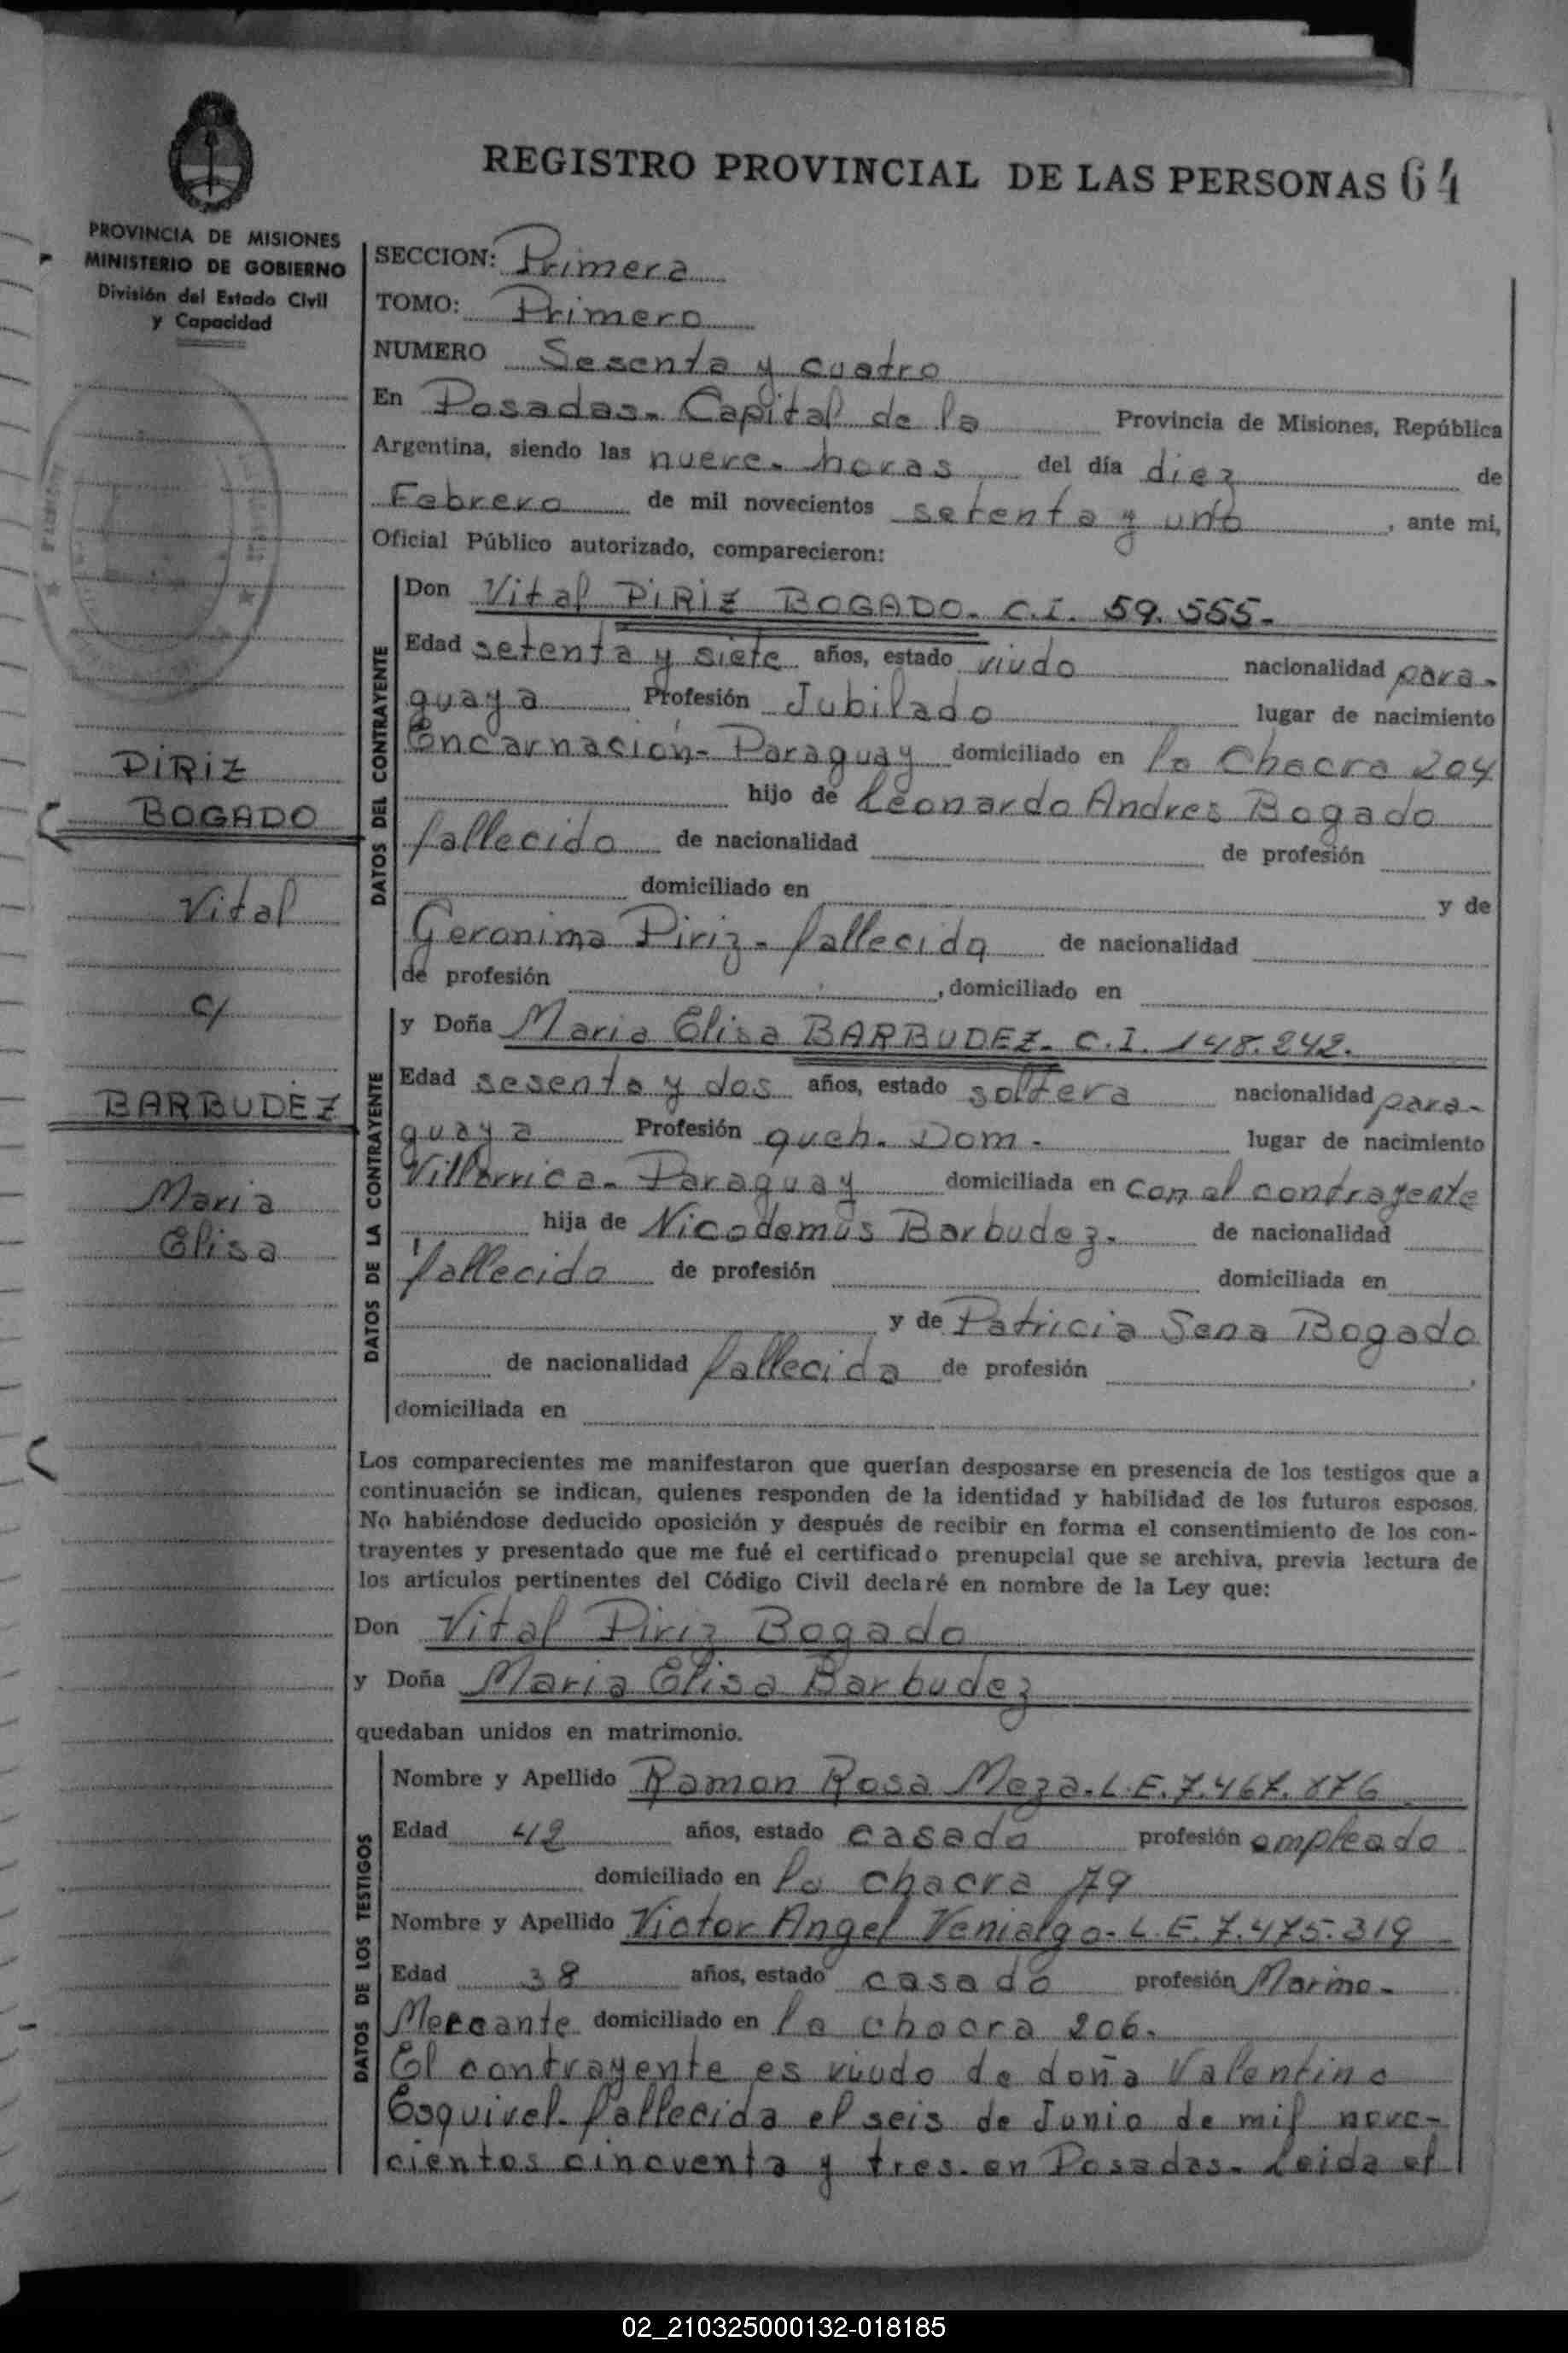 REGISTRO PROVINCIAL DE LAS PERSONAS 64
PROVINCIA DE MISIONES
MINISTERIO DE GOBIERNO
División del Estado Civil
y Capacidad
PIRIZ
BOGADO
Vital
c/
BARBUDEZ
Maria
Elisa
SECCION: Primera
TOMO: Primero
NUMERO Sesenta y cuatro
En Posadas- Capital de la Provincia de Misiones, República
Argentina, siendo las nueve- horas del día diez de
Febrero de mil novecientos setenta y uno, ante mi,
Oficial Público autorizado, comparecieron:
DATOS DEL CONTRAYENTE
Don Vital PIRIZ BOGADO- C.I. 59.555-
Edad setenta y siete años, estado viudo nacionalidad para-
guaya Profesión Jubilado lugar de nacimiento
Encarnación- Paraguay domiciliado en la Chacra 204
hijo de Leonardo Andres Bogado
fallecido de nacionalidad de profesión
domiciliado en y de
Geronima Piriz- fallecida de nacionalidad
de profesión , domiciliado en
DATOS DE LA CONTRAYENTE
y Doña Maria Elisa BARBUDEZ- C.I. 148.242.
Edad sesenta y dos años, estado soltera nacionalidad para-
guaya Profesión queh. Dom- lugar de nacimiento
Villarrica- Paraguay domiciliada en con el contrayente
hija de Nicodemus Barbudez- de nacionalidad
fallecido de profesión domiciliada en
y de Patricia Sena Bogado
de nacionalidad fallecida de profesión ,
domiciliada en
Los comparecientes me manifestaron que querían desposarse en presencia de los testigos que a
continuación se indican, quienes responden de la identidad y habilidad de los futuros esposos.
No habiéndose deducido oposición y después de recibir en forma el consentimiento de los con-
trayentes y presentado que me fué el certificado prenupcial que se archiva, previa lectura de
los artículos pertinentes del Código Civil declaré en nombre de la Ley que:
Don Vital Piriz Bogado
y Doña Maria Elisa Barbudez
quedaban unidos en matrimonio.
DATOS DE LOS TESTIGOS
Nombre y Apellido Ramon Rosa Meza- L.E. 7.467.
Edad 42 años, estado casado profesión empleado
domiciliado en la chacra 79
Nombre y Apellido Victor Angel Venialgo- L.E. 7.475.319
Edad 38 años, estado casado profesión Marino-
Mercante domiciliado en la chacra 206.
El contrayente es viudo de doña Valentina
Esquivel- fallecida el seis de Junio de mil nove-
cientos cincuenta y tres- en Posadas- Leida el
02_210325000132-018185